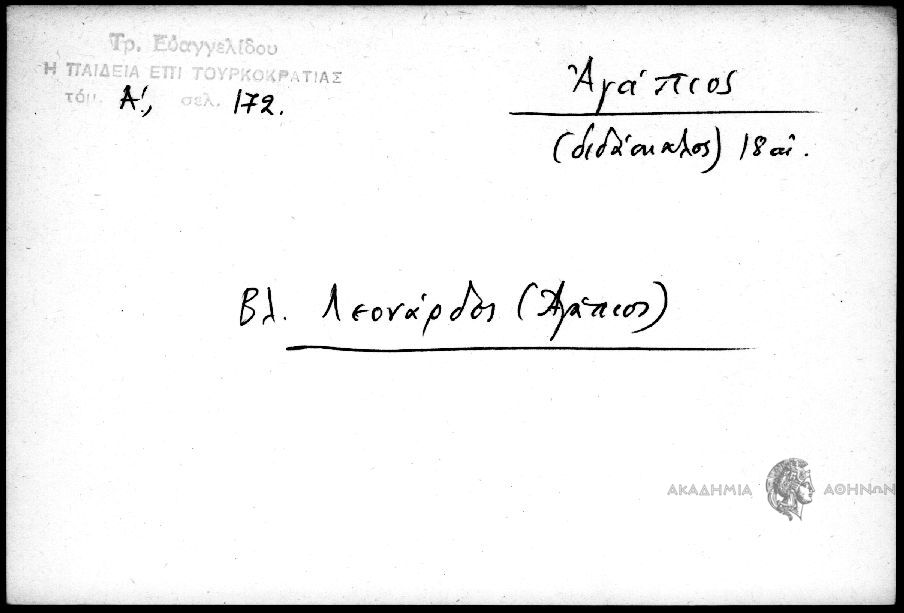 Τρ. Εὐαγγελίδου
Η ΠΑΙΔΕΙΑ ΕΠΙ ΤΟΥΡΚΟΚΡΑΤΙΑΣ
τόμ. Α!, σελ. 172.
Ἀγάπιος
(διδάσκαλος) 18 αἰ.
Βλ. Λεονάρδος (Ἀγάπιος)
ΑΚΑΔΗΜΙΑ ΑΘΗΝΩΝ